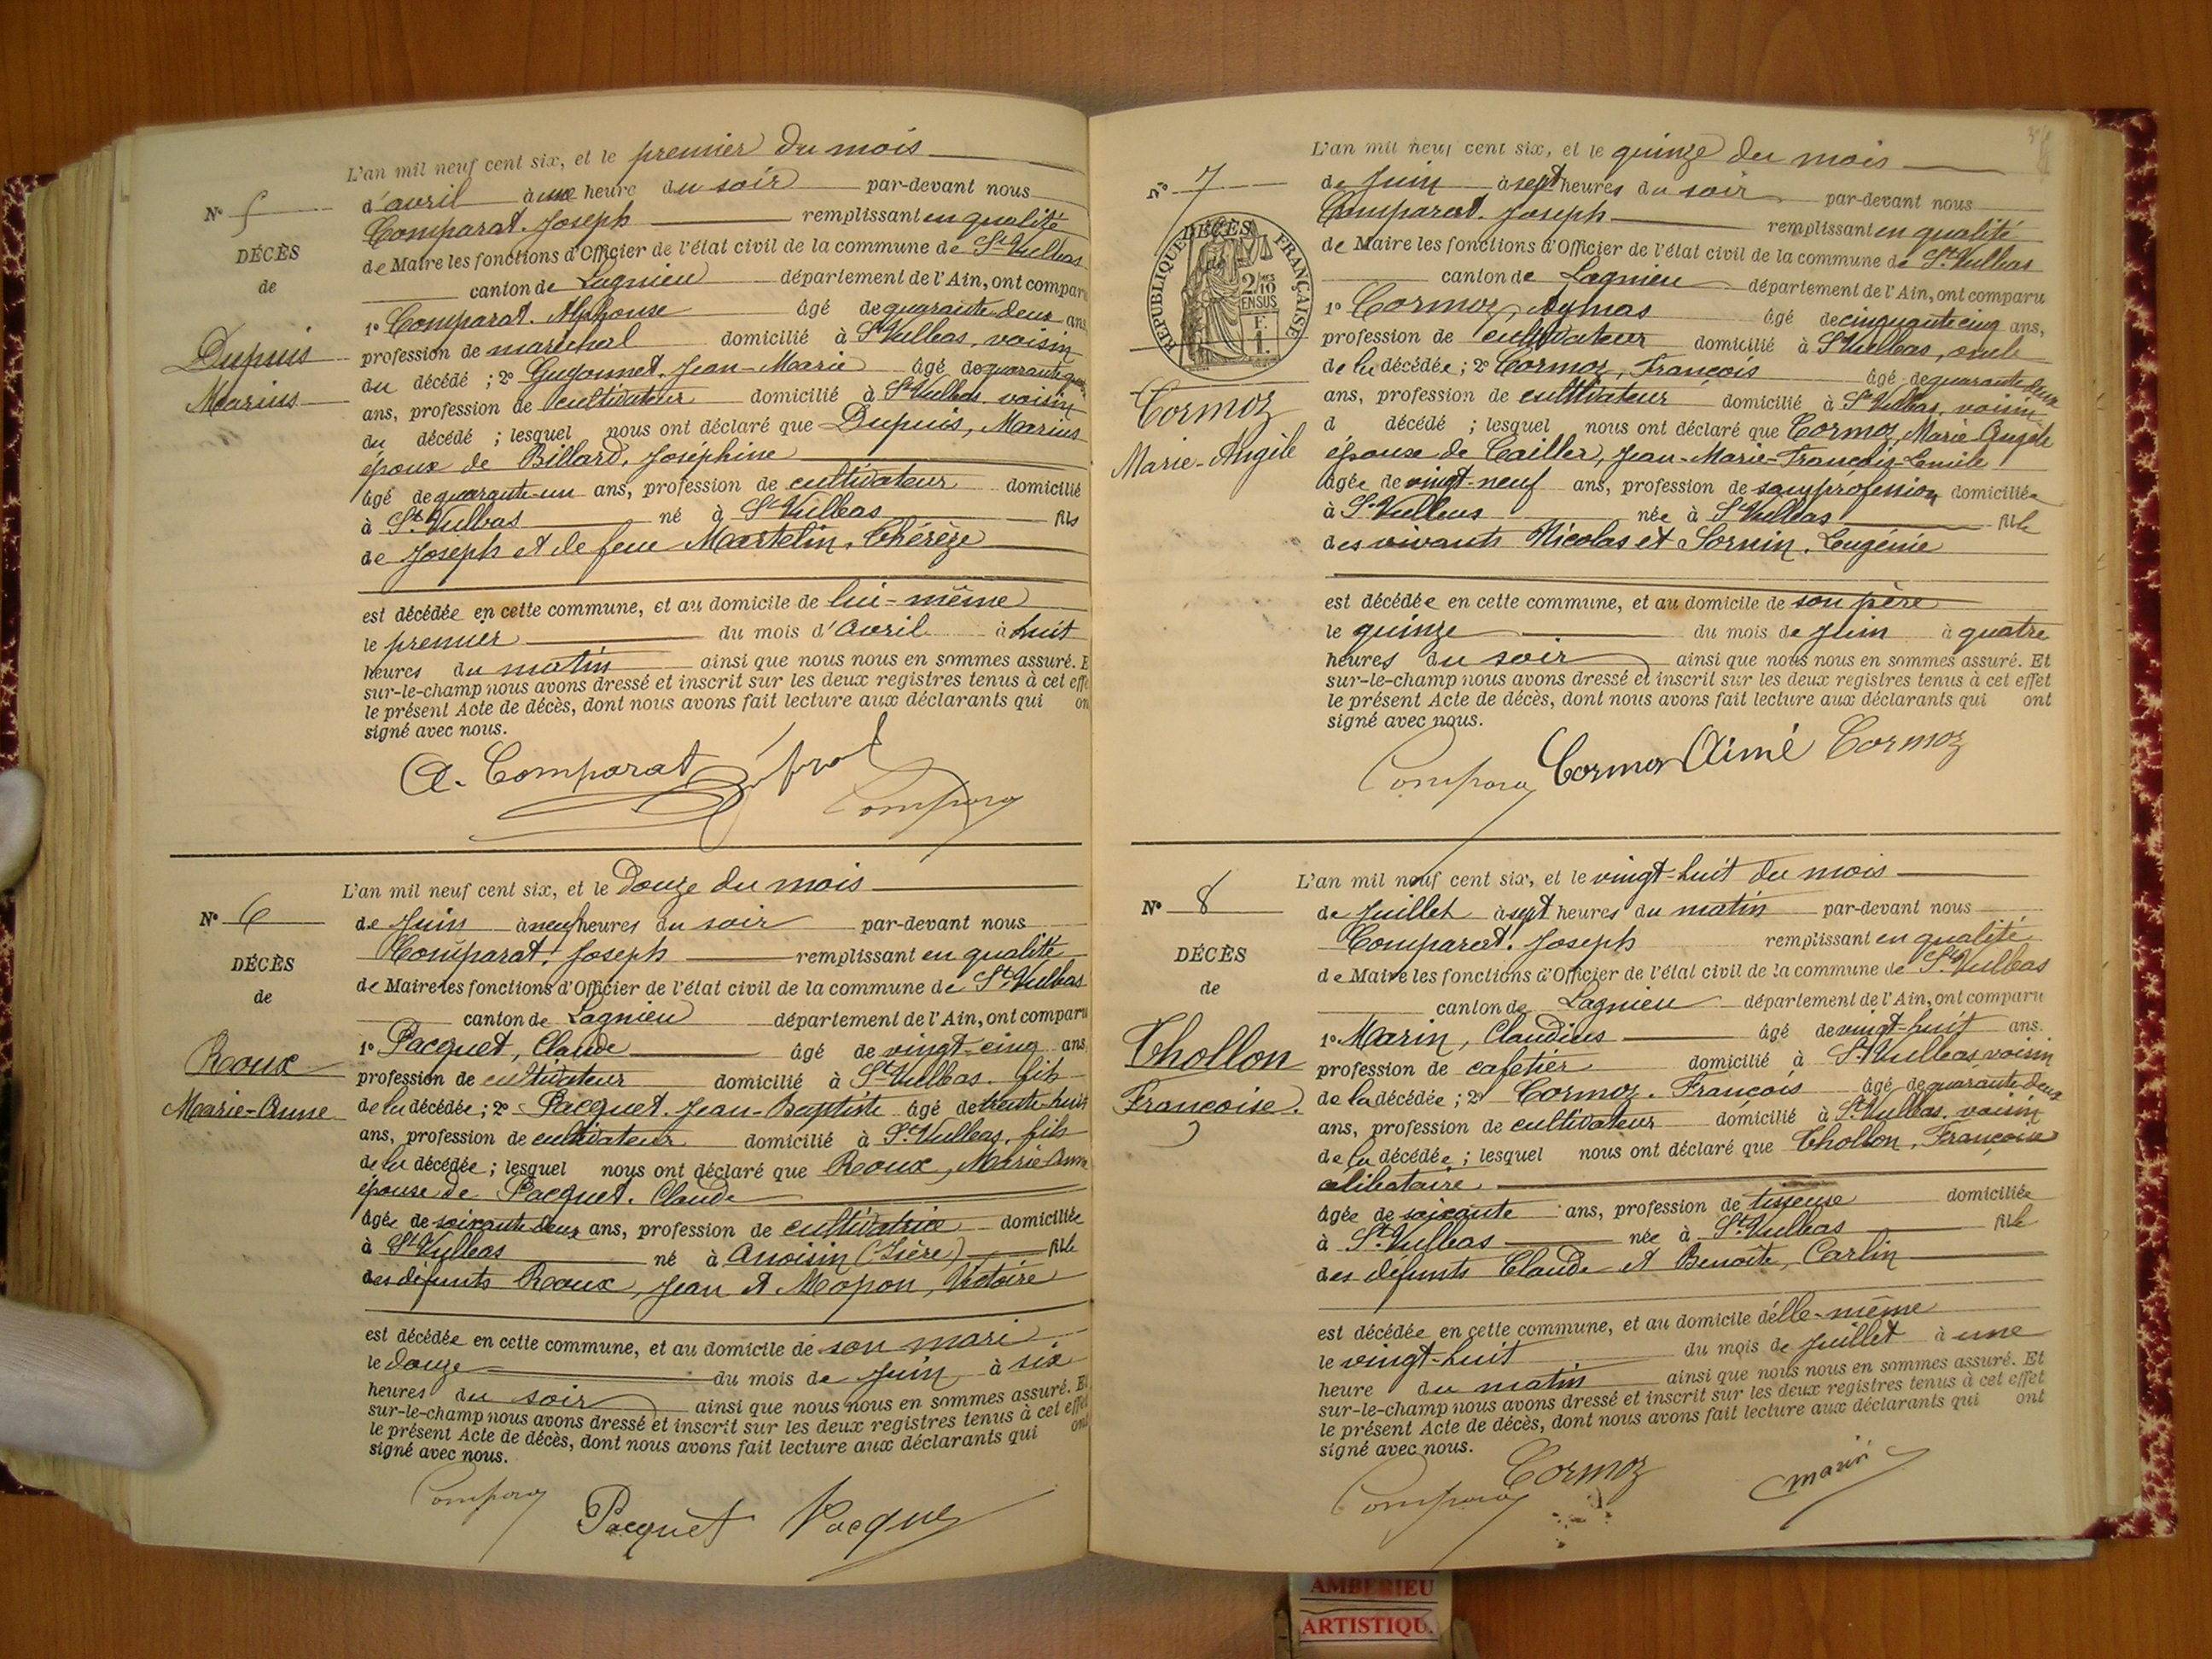 L'an mil neuf cent six, et le premier du mois
d'avril à une heure du soir par-devant nous
Comparat. Joseph remplissant en qualité
de Maire les fonctions d'Officier de l'état civil de la commune de St Vulbas
canton de Lagnieu département de l'Ain, ont comparu
1° Comparat. Alphonse âgé de quarante-deux ans
profession de maréchal domicilié à St Vulbas, voisin
du décédé ; 2° Guyonnet. Jean-Marie âgé de
ans, profession de cultivateur domicilié à St Vulbas. voisin
du décédé ; lesquel nous ont déclaré que Dupuis, Marius
époux de Billard, Joséphine
âgé de quarante-un ans, profession de cultivateur domicilié
à St Vulbas né à St Vulbas fils
de Joseph et de feue Martelin, Thérèze
est décédée en cette commune, et au domicile de lui-même
le premier du mois d'avril à huit
heures du matin ainsi que nous nous en sommes assuré. E
sur-le-champ nous avons dressé et inscrit sur les deux registres tenus à cet effe
le présent Acte de décès, dont nous avons fait lecture aux déclarants qui on
signé avec nous.
A. Comparat
N° 5
DÉCÈS
de
Dupuis
Marius
L'an mil neuf cent six, et le douze du mois
de Juin à neuf heures du soir par-devant nous
Comparat. Joseph remplissant en qualité
de Maire les fonctions d'Officier de l'état civil de la commune de St Vulbas
canton de Lagnieu département de l'Ain, ont comparu
1° Pacquet, Claude âgé de vingt-cinq ans
profession de cultivateur domicilié à St Vulbas. fils
de la décédée ; 2° Pacquet. Jean-Baptiste âgé de trente-huit
ans, profession de cultivateur domicilié à St Vulbas, fils
de la décédée ; lesquel nous ont déclaré que Roux, Marie-Anne
épouse de Pacquet. Claude
âgée de soixante-deux ans, profession de cultivatrice domiciliée
à St Vulbas né à Anoisin (Isère) fille
des défunts Roux, Jean et Mopon, Victoire
est décédée en cette commune, et au domicile de son mari
le douze du mois de Juin à six
heures du soir ainsi que nous nous en sommes assuré. Et
sur-le-champ nous avons dressé et inscrit sur les deux registres tenus à cet effet
le présent Acte de décès, dont nous avons fait lecture aux déclarants qui ont
signé avec nous.
Pacquet
N° 6
DÉCÈS
de
Roux
Marie-Anne
L'an mil neuf cent six, et le quinze du mois
de Juin à sept heures du soir par-devant nous
Comparat. Joseph remplissant en qualité
de Maire les fonctions d'Officier de l'état civil de la commune de St Vulbas
canton de Lagnieu département de l'Ain, ont comparu
1° Cormoz, Aymas âgé de cinquante cinq ans,
profession de cultivateur domicilié à St Vulbas, oncle
de la décédée ; 2° Cormoz, François âgé de quarante-deux
ans, profession de cultivateur domicilié à St Vulbas, voisin
d décédé ; lesquel nous ont déclaré que Cormoz, Marie-Angèle
épouse de Cailler, Jean-Marie-François-
âgée de vingt-neuf ans, profession de sans profession domiciliée
à St Vulbas née à St Vulbas fille
des vivants Nicolas et Sornin. Eugénie
est décédée en cette commune, et au domicile de son père
le quinze du mois de Juin à quatre
heures du soir ainsi que nous nous en sommes assuré. Et
sur-le-champ nous avons dressé et inscrit sur les deux registres tenus à cet effet
le présent Acte de décès, dont nous avons fait lecture aux déclarants qui ont
signé avec nous.
Cormoz Aimé Cormoz
N° 7
DÉCÈS
RÉPUBLIQUE FRANÇAISE
2/10
EN SUS
Cormoz
Marie-Angèle
L'an mil neuf cent six, et le vingt-huit du mois
de Juillet à sept heures du matin par-devant nous
Comparat. Joseph remplissant en qualité
de Maire les fonctions d'Officier de l'état civil de la commune de St Vulbas
canton de Lagnieu département de l'Ain, ont comparu
1° Marin, Claudius âgé de vingt-huit ans.
profession de cafetier domicilié à St Vulbas voisin
de la décédée ; 2° Cormoz. François âgé de quarante-deux
ans, profession de cultivateur domicilié à St Vulbas. voisin
de la décédée ; lesquel nous ont déclaré que Thollon, Françoise
célibataire.
âgée de soixante ans, profession de tisseuse domiciliée
à St Vulbas née à St Vulbas fille
des défunts Claude et Benoîte, Carlin
est décédée en cette commune, et au domicile d'elle-même
le vingt-huit du mois de Juillet à une
heure du matin ainsi que nous nous en sommes assuré. Et
sur-le-champ nous avons dressé et inscrit sur les deux registres tenus à cet effet
le présent Acte de décès, dont nous avons fait lecture aux déclarants qui ont
signé avec nous.
Cormoz Marin
N° 8
DÉCÈS
de
Thollon
Françoise.
AMBERIEU
ARTISTIQU